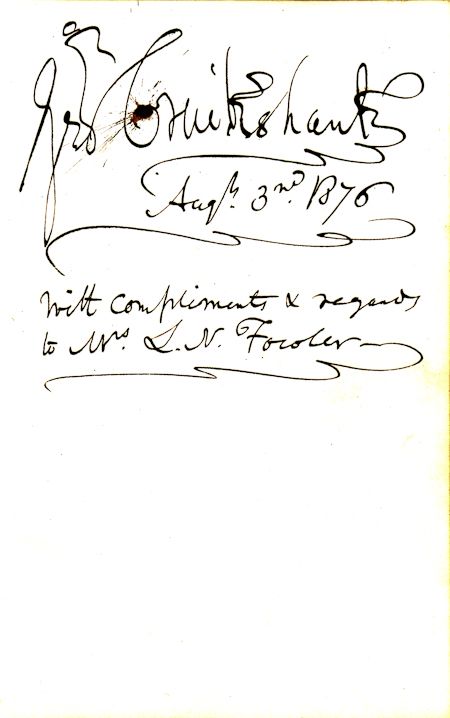 Geo Cruikshank
Augt. 3rd. 1876
With compliments & regards
to Mrs. L. N. Fowler—